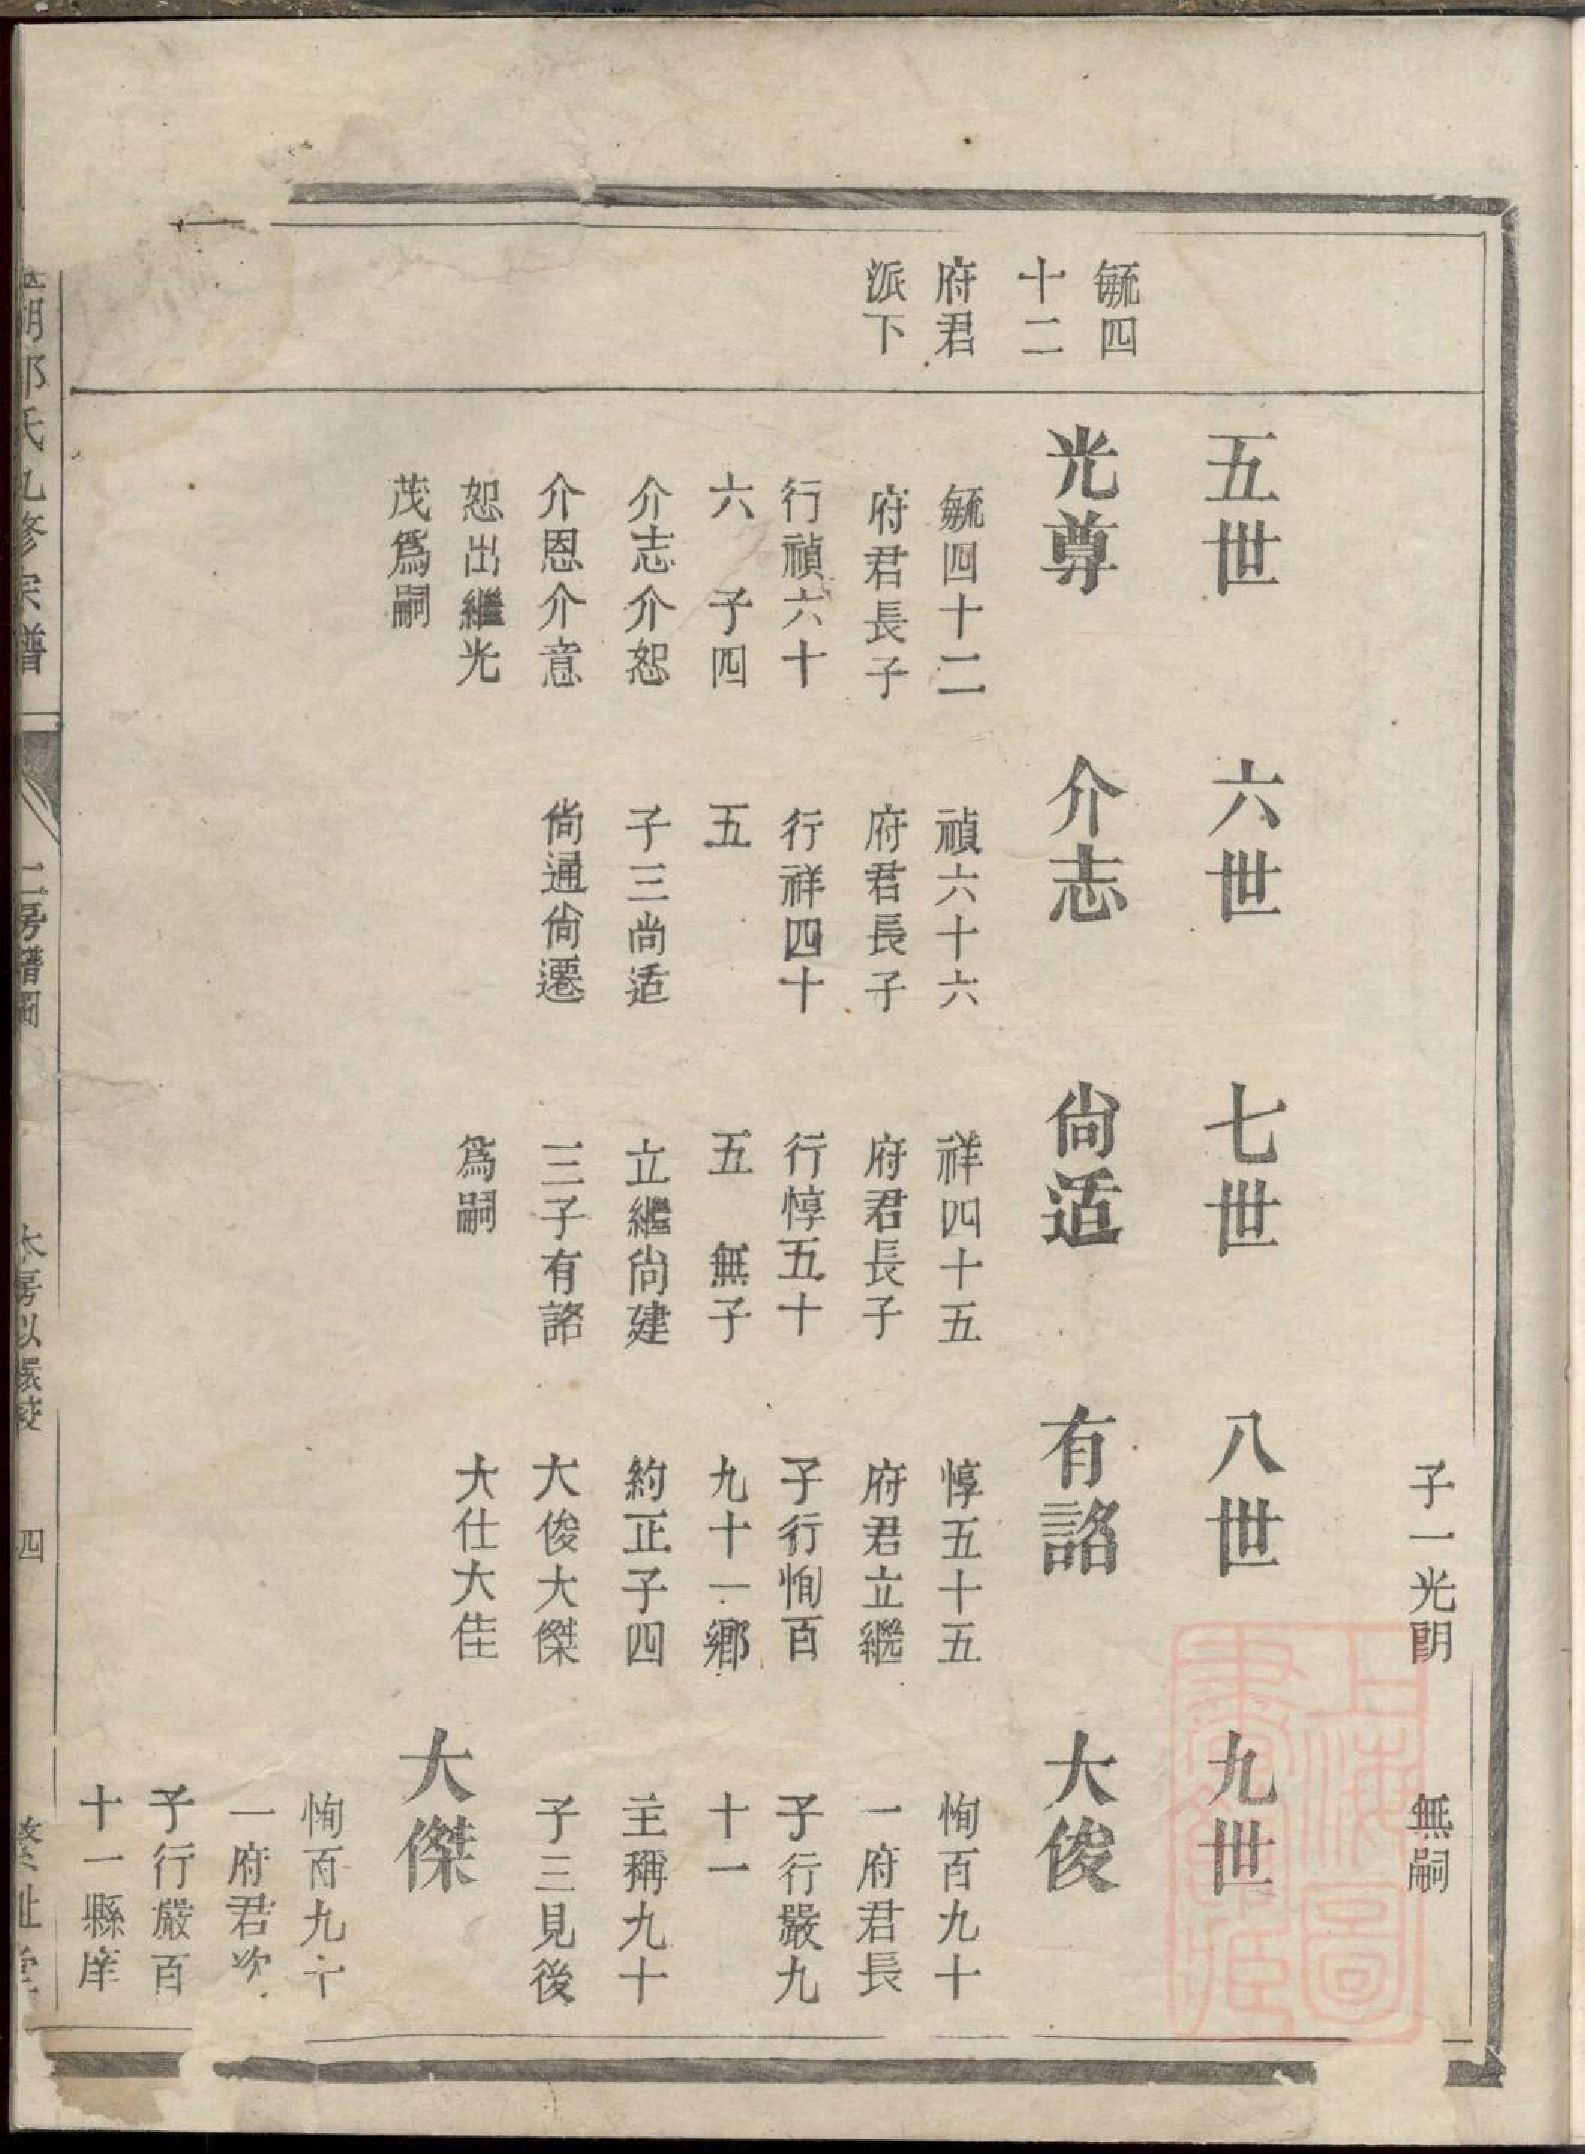 子一光明
無嗣
毓四
十二
府君
派下
五世
光尊
毓四十二
府君長子
行禎六十
六 子四
介志介恕
介恩介意
恕出繼光
茂爲嗣
六世
介志
禎六十六
府君長子
行祥四十
五
子三尚适
尚通尚遷
七世
尚适
祥四十五
府君長子
行惇五十
五 無子
立繼尚建
三子有詻
爲嗣
八世
有詻
惇五十五
府君立繼
子行恂百
九十一鄉
約正子四
大俊大傑
大仕大佳
九世
大俊
恂百九十
一府君長
子行嚴九
十一
主稱九十
子三見後
大傑
恂百九十
一府君次
子行嚴百
十一縣庠
氏九修宗譜
二房譜圖
本房以
四
上海圖
書館藏